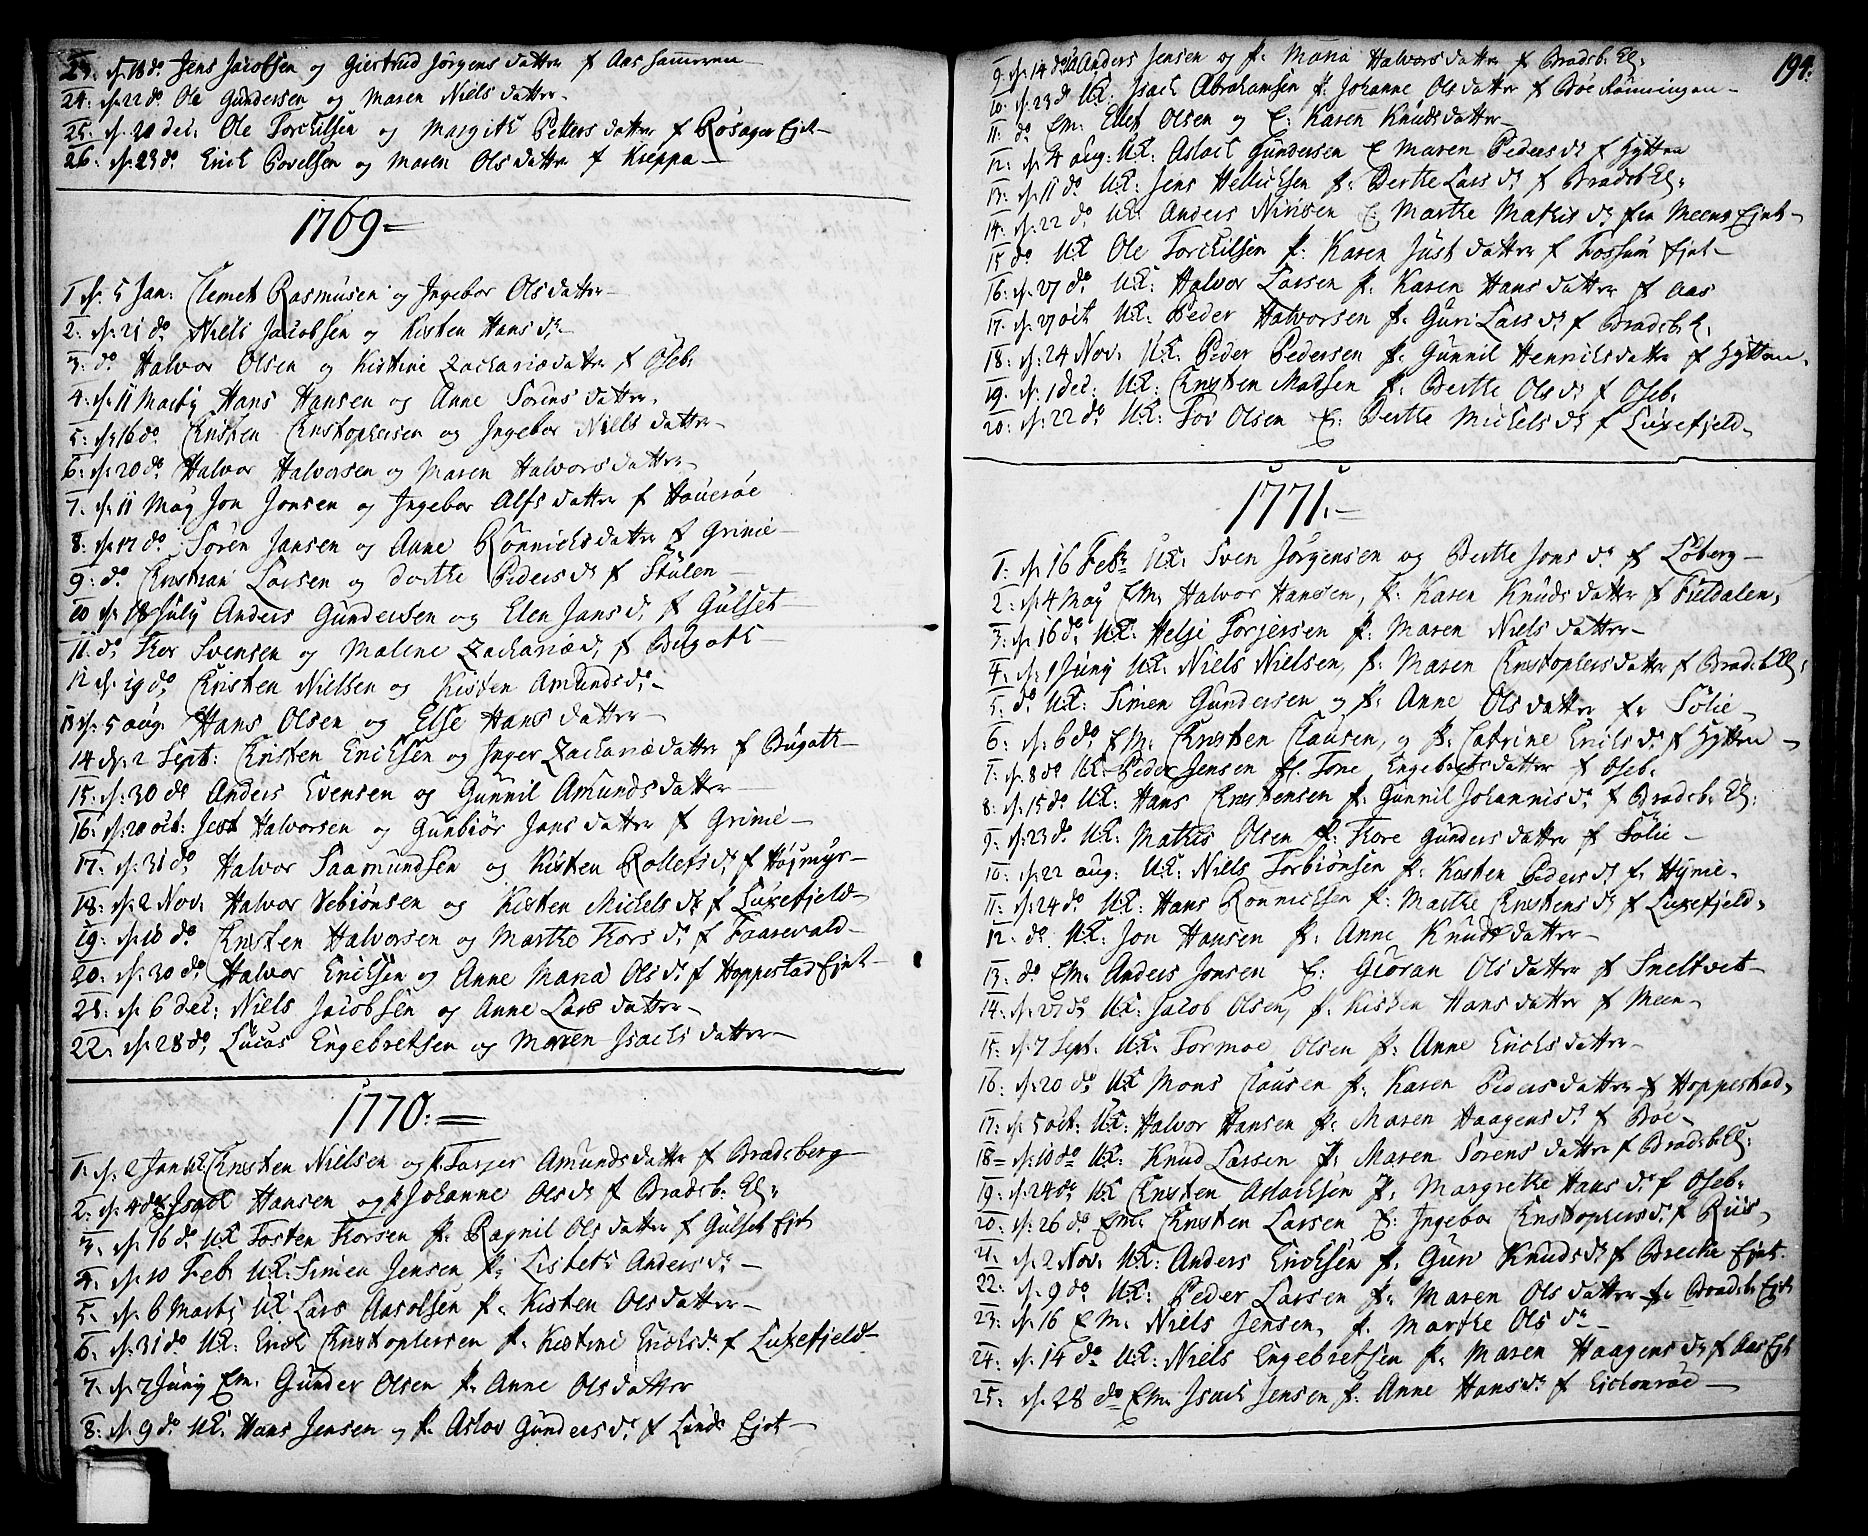 23: d. 18 do Jens Jacobsen og Giertrud Jörgens datter f Aas
24: d. 22 do Ole Gundersen og Maren Niels datter
25: d. 20 dec: Ole Torchilsen og Margith Petters datter f Rosager Ejet
26: d. 23 do Erich Povelsen og Maren Ols datter f Kreppa
1769
1 d. 5 Jan: Clemet Rasmusen og Ingebor Olsdatter
2: d. 21 do Niels Jacobsen og Kisten Hans dr
3: do Halvor Olsen og Kistine Zachariædatter f Oseb.
4: d. 11 Martj Hans Hansen og Anne Sörens datter
5: d. 16 do Christen Christophersen og Ingebor Niels datter
6: d. 20 do Halvor Halvorsen og Maren Halvors datter
7: d. 11 Maj Jon Jonsen og Ingebor Alfs datter f Houeröe
8: d. 17 do Sören Jansen og Anne Rönnichsdatter f Grinie
9: do Christian Larsen og Dorthe Peders dr f Stulen
10 d. 18 July Anders Gundersen og Elen Jans d. f Gulset
11: do Thor Svensen og Malene Zachariæ d. f Bugoth
12 d. 19 do Christen Nielsen og Kisten Amunds dr
13 d. 5 aug. Hans Olsen og Else Hans datter
14 d. 2 Sept: Christen Erichsen og Inger Zachariædatter f Bugath
15: d. 30 do Anders Evensen og Gunnil Amunds datter
16: d. 20 oct: Halvorsen og Gunbiör Jans datter f Grinie
17: d. 31 do Halvor Saamundsen og Kisten Rollefs dr f Højmyr
18: d. 2 Nov. Halvor Vebiönsen og Kisten Michels dr f Luxefjeld
19: d. 10 do Christen Halvorsen og Marthe Thors dr f Faarevald
20: d. 30 do Halvor Erichsen og Anne Maria Ols dr f Hoppestad Ejet
21: d. 6 dec: Niels Jacobsen og Anne Lars datter
22: d. 28 do Lucas Engebretsen og Maren Isachs datter
1770
1: d. 2 Jan UK Christen Nielsen og f. Torjer Amunds datter f Bradsberg
2: d. 4 do Isach Hansen og f. Johanne Ols dr f Bradsb. El:
3: d. 16 do UK Tosten Thorsen f. Ragnil Ols datter f Gulset Ejet
4: d. 10 Feb. UK: Simen Jensen f: Lisbeth Anders dr
5: d. 6 Martj UK Lars Aasolsen f. Kisten Ols datter
6: d. 31 do UK: Erich Christophersen f. Kistine Erichs dr f Luxefjeld
7: d. 7 Junj Em. Gunder Olsen f. Anne Ols datter
8: d. 9 do UK. Hans Jensen og f. Aslov Gunders dr f Lunde Ejet
194.
9: d. 14 do Anders Jensen og f. Maria Halvors datter f Bradsb. El:
10: d. 23 do UK. Isach Abrahamsen f. Johanne Ols datter f Böe Rönningen
11: do Em: Ellef Olsen og E: Karen Knuds datter
12: d. 4 aug: UK: Aslach Gundersen E Maren Peders dr f Hytten
13: d. 11 do UK: Jens Hellichsen f: Berthe Lars dr f Bradsb El:
14: d. 22 do UK: Anders Nirisen E: Marthe Mathis dr fra Meens Ejet
15 do UK Ole Torchilsen f: Karen Just datter f Fossum Ejet
16: d. 27 do UK: Halvor Larsen f. Karen Hans datter f Aas
17: d. 27 oct UK: Peder Halvorsen f. Guri Lars dr f Bradsb. E.
18: d. 24 Nov. UK. Peder Pedersen f. Gunnil Henrichs datter f Hytten
19: d. 1 dec: UK: Christen Madsen f. Berthe Ols dr f Oseb.
20: d. 22 do UK: Tov Olsen E: Berthe Michels dr f Luxefjeld
1771
1: d. 16 Febr UK. Sven Jörgensen og Berthe Jons dr f Löberg
2: d. 4 Maj Em. Halvor Hansen, f. Karen Knuds datter f Fieldalen
3: d. 16 do UK: Helje Torjersen f. Maren Niels datter
4: d. 1 Junj UK: Niels Nielsen, f. Maren Christophersdatter f Bradsb El:
5: do UK: Simen Gundersen og f. Anne Ols datter f. Sölie
6: d. 6 do Em. Christen Clausen, og f. Catrine Erichs dr f Hytten
7: d. 8 do UK: Peder Jensen f. Tone Engebrets datter f Oseb.
8: d. 15 do UK: Hans Christensen f. Gunnil Johannis dr f Bradsb. El:
9: d. 23 do UK: Mathis Olsen f. Thore Gunders datter f Sölie
10: d. 22 aug: UK. Niels Torbiönsen f. Kisten Peders dr f. Hynie
11: d. 24 do UK: Hans Rönnichsen f: Marthe Christens dr f Luxefjeld
12: do UK: Jon Hansen f. Anne Knuds datter
13: do Em. Anders Jonsen E: Giöran Ols datter f Sneltvet
14: d. 27 do UK: Jacob Olsen, f. Kisten Hans datter f Meen
15: d. 7 Sept. UK. Tormoe Olsen f. Anne Erichs datter
16: d. 20 do UK Mons Clausen f. Karen Peders datter f Hoppestad
17: d. 5 oct: UK: Halvor Hansen f. Maren Haagens dr f Böe
18 d. 10 do UK: Knud Larsen f. Maren Sörens datter f Bradsb El:
19: d. 24 do UK Christen Aslachsen f. Margrethe Hans dr f Oseb.
20: d. 26 do Em. Christen Larsen E: Ingebor Christophers dr f Riis
21: d. 2 Nov. UK: Anders Erichsen f. Guri Knuds dr f Brecke Ejet
22: d. 9 do UK: Peder Larsen f. Maren Ols datter f. Bradsb Ejet
23: d. 16 Em. Niels Jensen, f. Marthe Ols dr
24: d. 14 do UK: Niels Engebretsen f. Maren Haagens dr f Aas Ejet
25: d. 28 do Em. Isach Jensen f. Anne Hans dr f